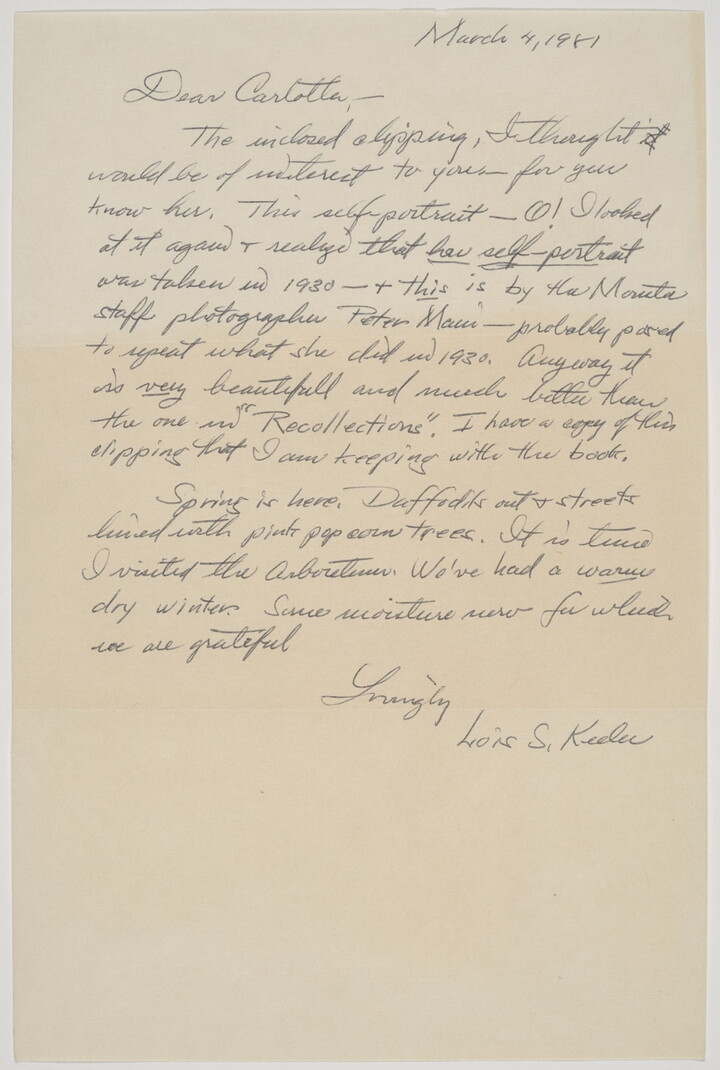 March 4, 1981
Dear Carlotta,—
The inclosed clipping, I thought
would be of interest to you — for you
know her. This self-portrait — O! I looked
at it again + realize that her self-portrait
was taken in 1930 — + this is by the
staff photographer Peter Main — probably posed
to repeat what she did in 1930. Anyway it
is very beautifull and much better than
the one in "Recollections". I have a copy of this
clipping that I am keeping with the book.
Spring is here. Daffodils out + streets
lined with pink popcorn trees. It is time
I visited the Arboretum. We've had a warm
dry winter. Some moisture now for which
we are grateful
Lovingly
Lois S.